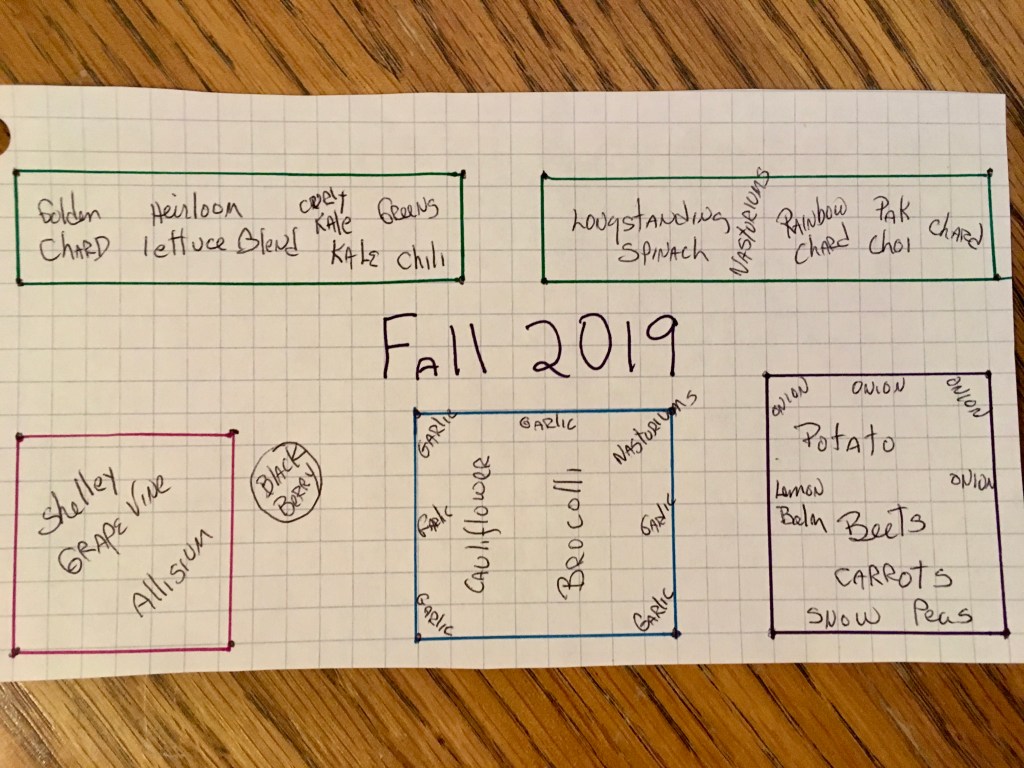 Golden
CHARD
Heirloom
lettuce Blend
curly
KALE
KALE
Greens
Chili
LONGSTANDING
SPINACH
NASTURIUMS
RAINBOW
CHARD
PAK
CHOI
CHARD
FAll 2019
Shelley
GRAPE VINE
Allisium
BLACK
BERRY
GARLIC
GARLIC
NASTURIUMS
CAULIFLOWER
BROCOLLI
GARLIC
GARLIC
GARLIC
GARLIC
ONION
ONION
ONION
Potato
Lemon
Balm
ONION
Beets
CARROTS
SNOW Peas